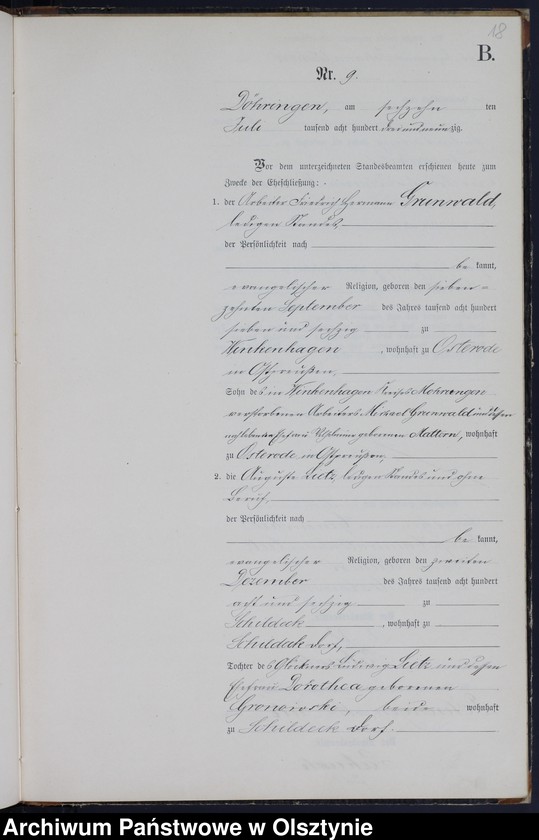 18
B.
Nr. 9.
Döhringen, am sechzehn ten
Juli tausend acht hundert drei und neun zig.
Vor dem unterzeichneten Standesbeamten erschienen heute zum
Zwecke der Eheschließung:
1. der Arbeiter Friedrich Hermann Grunwald,
ledigen Standes
der Persönlichkeit nach
be kannt,
evangelischer Religion, geboren den sieben-
zehnten September des Jahres tausend acht hundert
sieben und sechzig zu
Wenkenhagen, wohnhaft zu Osterode
in Ostpreußen,
Sohn des in Wenkenhagen Kreises Mohrungen
verstorbenen Arbeiters Michael Grunwald und dessen
Ehefrau geborenen, wohnhaft
zu Osterode in Ostpreußen,
2. die Auguste Lietz, ledigen Standes und ohne
Beruf,
der Persönlichkeit nach
be kannt,
evangelischer Religion, geboren den zweiten
Dezember des Jahres tausend acht hundert
acht und sechzig zu
Schildeck, wohnhaft zu
Schildeck Dorf,
Tochter des Glöckners Ludwig Lietz und dessen
Ehefrau Dorothea geborenen
Gronowski, beide wohnhaft
zu Schildeck Dorf.
Archiwum Państwowe w Olsztynie